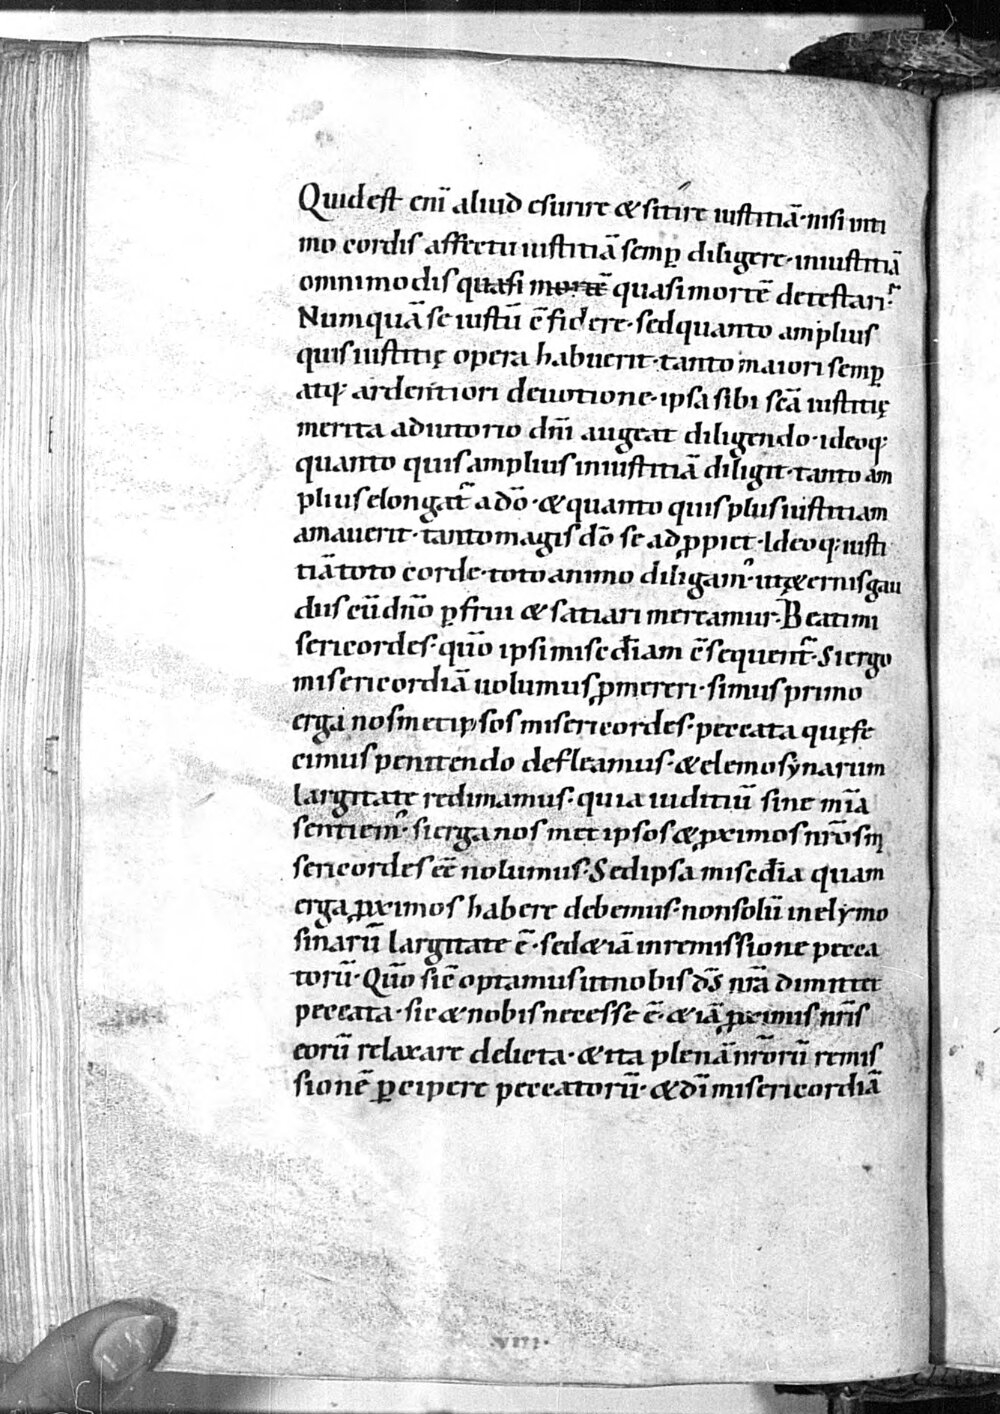 Quid est eni̅ aliud esurire & sitire iustitia̅· nisi inti
mo cordis affectu iustitia̅ semp̲ diligere· iniustitia̅
omnimodis quasi morte̅ quasi morte̅ detestari·
Numqua̅ se iustu̅ e̅ fidere· sed quanto amplius
quis iustitię opera habuerit· tanto maiori semp̲
atq; ardentiori deuotione· ipsa sibi sc̅a iustitię
merita adiutorio dn̅i augeat diligendo· ideoq;
quanto quis amplius iniustitia̅ diligit· tanto am
plius elongat᷑ a do̅· & quanto quis plus iustitiam
amauerit· tanto magis do̅ se ad ꝓpiet· Ideoq; iusti
tia̅ toto corde· toto animo diligam᷑· ut & ęternis gau
diis cu̅ dn̅o ꝑfrui & satiari mereamur· Beati mi
sericordes· quo̅ ipsi misc̅diam e̅sequent᷑· Si ergo
misericordia̅ uolumus ꝓmereri· simus primo
erga nosmetipsos misericordes· peccata quę fe
cimus penitendo defleamus· & elemosynarum
largitate redimamus· quia iuditiu̅ sine mi̅a
sentiem᷑· si erga nos met ipsos & ꝓximos nr̅os mi
sericordes ee̅ nolumus· Sed ipsa misc̅dia quam
erga ꝓximos habere debemus· non solu̅ in elymo
sinaru̅ largitate e̅· sed & ia̅ in remissione pecca
toru̅· Quo̅ sic̅ optamus ut nobis ds̅ nr̅a dimittet
peccata· sic & nobis necesse e̅· & ia̅ ꝓximis nr̅is
eoru̅ relaxare delicta· & ita plena̅ nr̅oru̅ remis
sione̅ ꝑcipere peccatoru̅· & di̅ misericordia̅
·VIII·